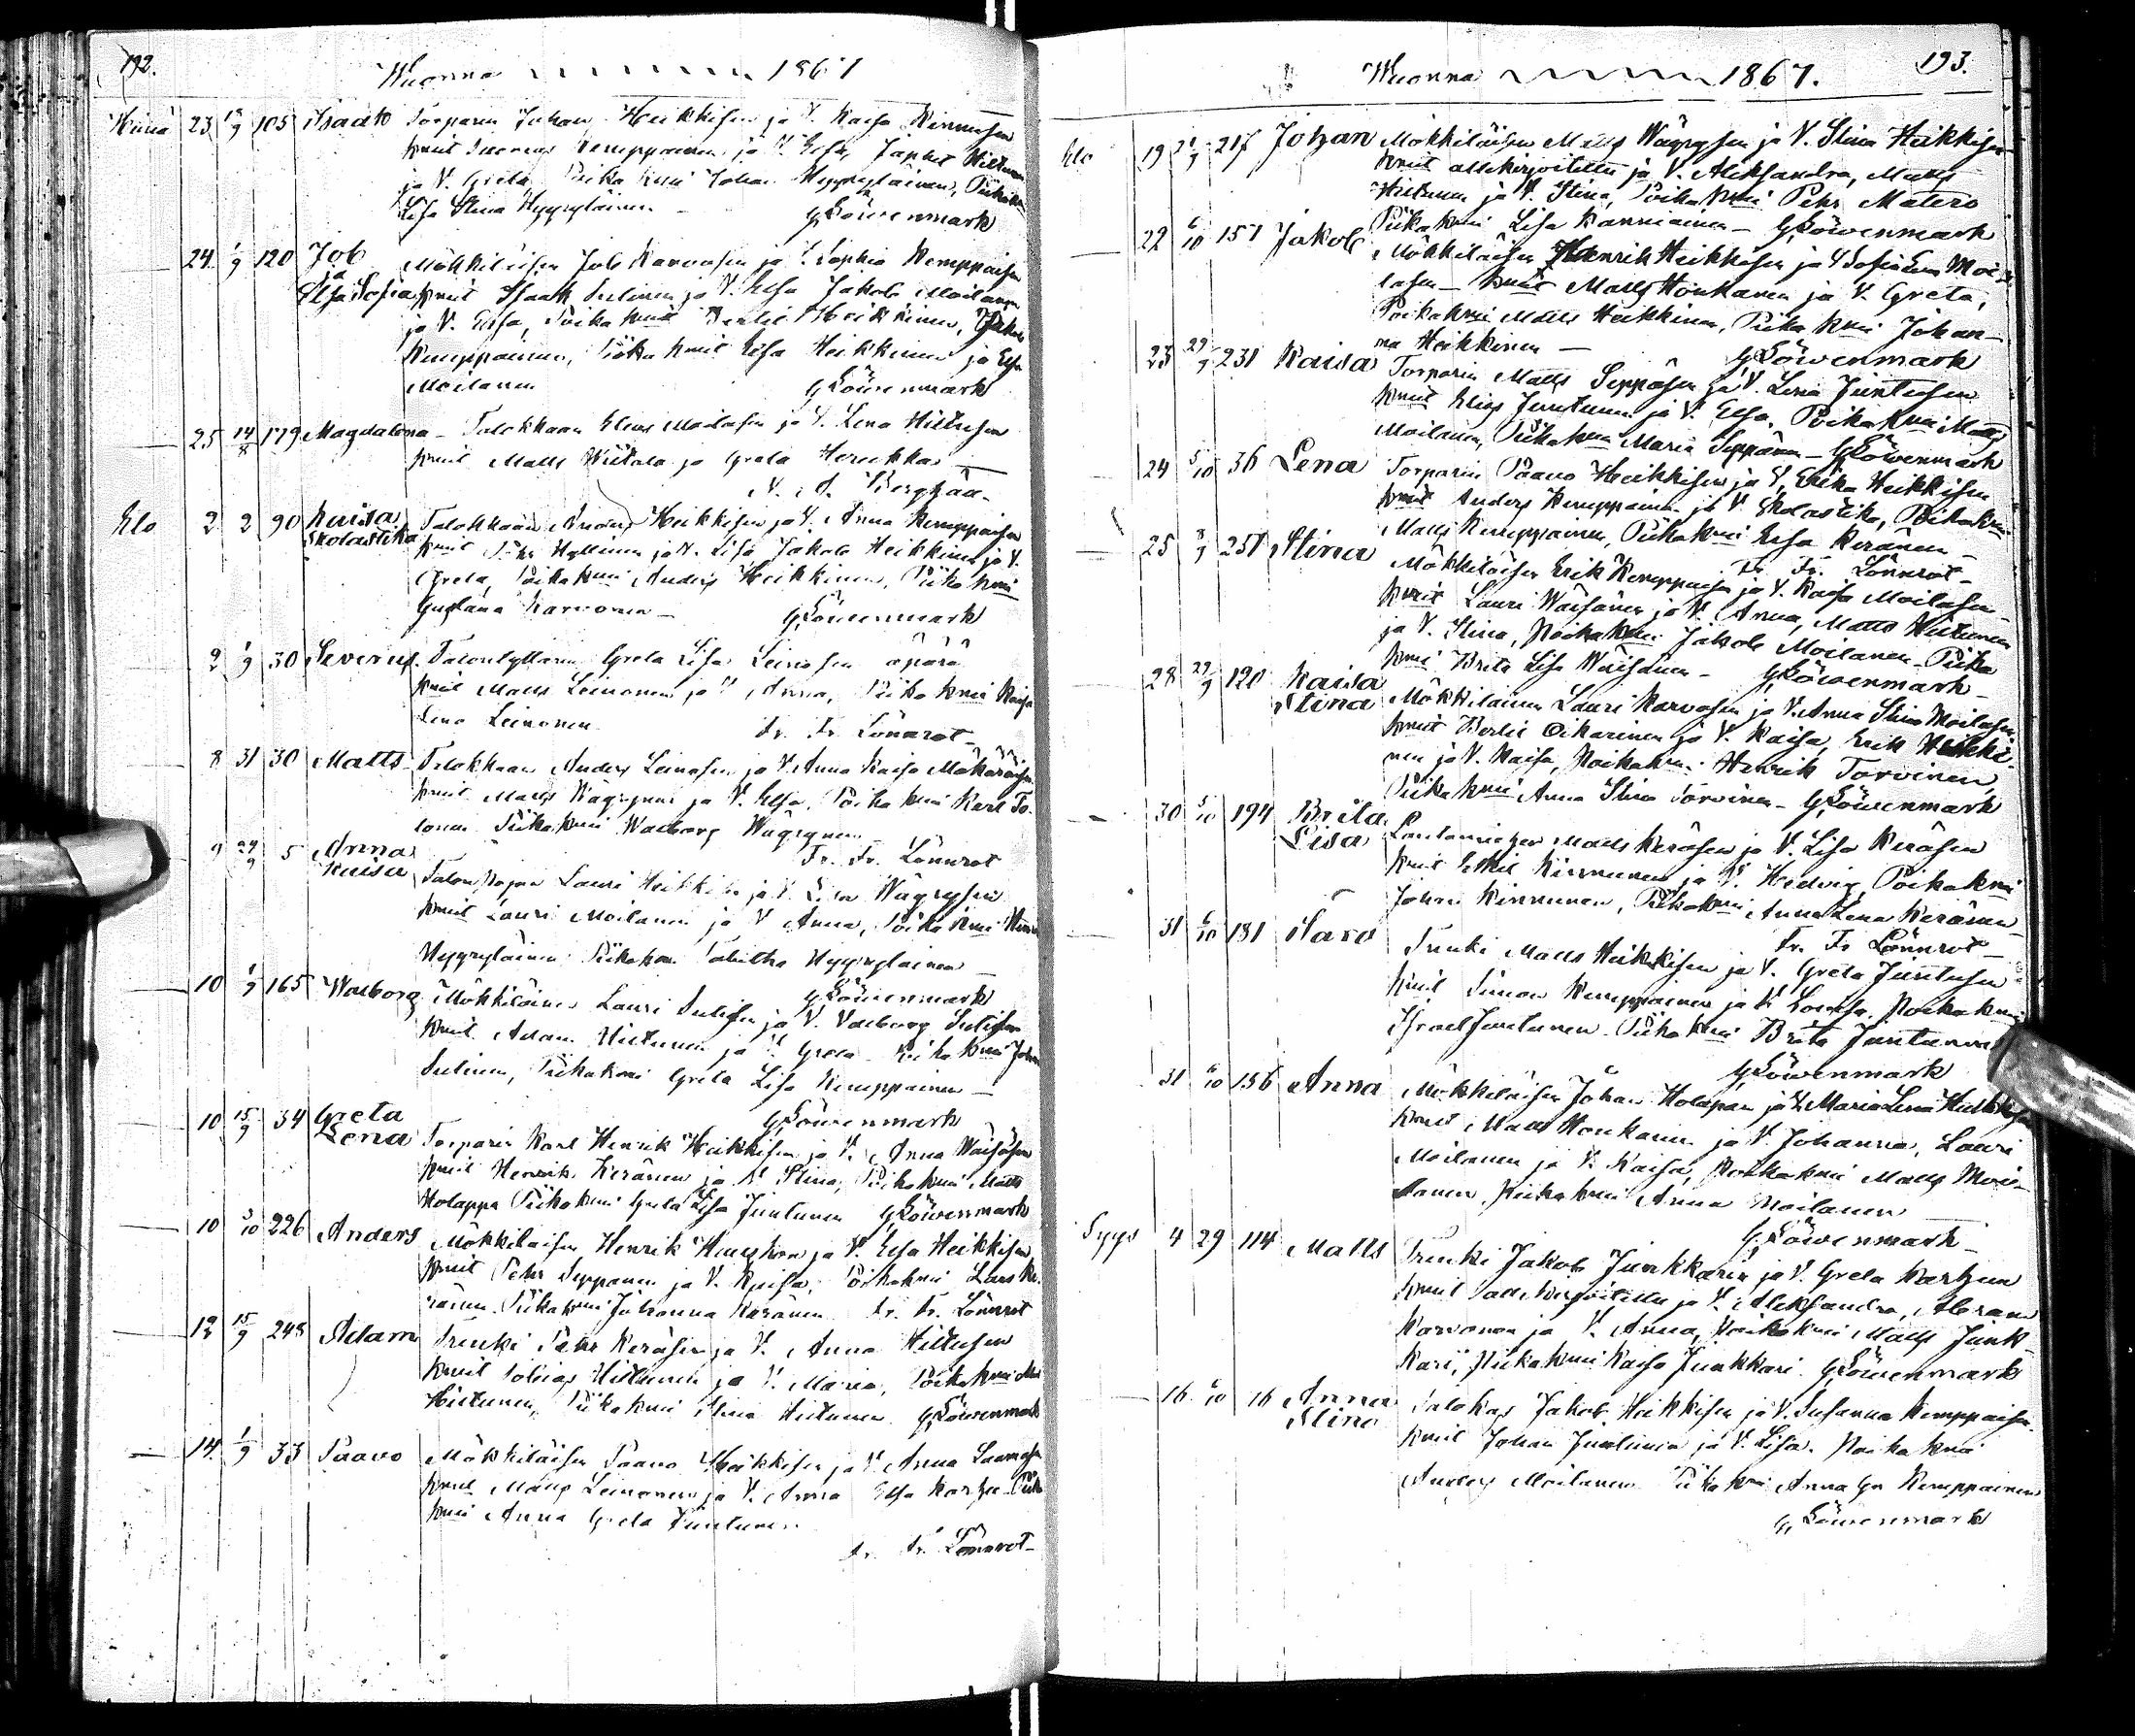 192.
Wuonna 1867
Heinä 23 9 105 Isaak Torparin Johan Heikkisen ja V. Kaisa Kinnusen
kmit Kemppainen ja V. Elsa, Japhet Hiltunen
ja V. Greta Poika kmi Johan Hyyryläinen, Piikakmi
Lisa Stina Hyyryläinen GLöwenmark
24 1/9 120 Job Mökkiläisen Job Karvosen ja V. Sophia Kemppaisen
ja
Elsa Sofia kmit Isaak Sutinen ja V. Elsa Jakob Moilanen
ja V. Elsa, Poika kmit Bertil Heikkinen, Jakob
Kemppainen, Piika kmit Elsa Heikkinen ja Elsa
Moilanen GLöwenmark
25 14/8 179 Magdalena Talokkaan Elias Moilasen ja V. Lena Hiltusen
kmit Matts Wiitala ja Greta
A. Bergh
Elo 2 2 90 Kaisa Talokkaan Anders Heikkisen ja V. Anna Kemppaisen
Skolastika kmit Pehr Hyttinen ja V. Lisa Jakob Heikkinen ja V.
Greta, Poikakmi Anders Heikkinen, Piika kmi
Gustava Karvonen GLöwenmark
2 1/9 30 Severus. Talontyttären Greta Lisa Leinosen äpärä
kmit Matts Leinonen ja V. Anna, Piika kmi Kaisa
Lena Leinonen Fr. Fr. Lönnrot
8 31 30 Matts Talokkaan Anders Leinosen ja V. Anna Kaisa Mökäräisen
kmit Matts Wäyrynen ja V. Elsa, Poika kmi Karl To-
lonen Piikakmi Walborg Wäyrynen
Fr. Fr. Lönnrot
9 29/9 5 Anna
Kaisa Talon Lauri Heikkisen ja V. Wäyrysen
kmit Lauri Moilanen ja V. Anna, Poika kmi
Hyyryläinen Piikakmi Tabitha Hyyryläinen
GLöwenmark
10 1/9 165 Walborg Mökkiläisen Lauri Sutisen ja V. Valborg Sutisen
kmit Adam Hiltunen ja V. Greta Poika kmi Johan
Sutinen, Piikakmi Greta Lisa Kemppainen
GLöwenmark
10 15/9 34 Greta
Lena Torparin Karl Henrik Heikkisen ja V. Anna Wäisäsen
kmit Henrik Keränen ja V. Stina, Poika kmi Matts
Holappa Piika kmi Greta Lisa Juntunen GLöwenmark
10 5/10 226 Anders Mökkiläisen Henrik ja V. Elsa Heikkisen
kmit Pehr Seppänen ja V. Kaisa, Poikakmi Lars Ke-
ränen Piikakmi Johanna Keränen Fr. Fr. Lönnrot
12 15/9 248 Adam Trenki Pehr Keräsen ja V. Anna Hiltusen
kmit Tobias Hiltunen ja V. Maria, Poika kmi
Hiltunen, Piikakmi Stina Hiltunen GLöwenmark
14 1/9 33 Paavo Mökkiläisen Paavo Heikkisen ja V. Anna
kmit Matts Leinonen ja V. Anna Elsa Karhu Piika
kmi Anna Greta Juntunen
Fr. Fr. Lönnrot
193.
Wuonna 1867.
Elo 19 9 217 Johan Mökkiläisen Matts Wäyrysen ja V. Stina Heikkisen
kmit allekirjoitettu ja V. Aleksandra, Matts
Hiltunen ja V. Stina, Poika kmi Pehr Matero
Piika kmi Lisa Kanniainen GLöwenmark
22 6/10 157 Jakob Mökkiläisen Henrik Heikkisen ja V. Sofia Moi-
lasen kmit Matts Honkanen ja V. Greta,
Poikakmi Matts Heikkinen, Piika kmi Johan-
na Heikkinen GLöwenmark
23 29/9 231 Kaisa Torparin Matts Seppäsen ja V. Lena Juntusen
kmit Elias Juntunen ja V. Elsa, Poikakmi Matts
Moilanen, Piikakmi Maria Seppänen GLöwenmark
24 5/10 36 Lena Torparin Paavo Heikkisen ja V. Erika Heikkisen
kmit Anders Kemppainen ja V. Skolastika, Poikakmi
Matts Kemppainen, Piikakmi Elsa Keränen
Fr. Fr. Lönnrot
25 9 251 Stina Mökkiläisen Erik Kemppaisen ja V. Kaisa Moilasen
kmit Lauri Wäisänen ja V. Anna, Matts Hiltunen
ja V. Stina, Poikakmi Jakob Moilanen Piika
kmi Brita Lisa Wäisänen GLöwenmark
28 29/9 120 Kaisa
Stina Mökkiläisen Lauri Karvosen ja V. Anna Stina Moilasen
kmit Bertil Oikarinen ja V. Kaisa, Erik Heikki-
nen ja V. Kaisa, Poikakmi Henrik Torvinen,
Piika kmi Anna Stina Torvinen GLöwenmark
30 5/10 194 Brita
Lisa Lautamiehen Matts Keräsen ja V. Lisa Keräsen
kmit Erkki Kinnunen ja V. Hedvig Poikakmi
Johan Kinnunen, Piikakmi Anna Lena Keränen
Fr. Fr. Lönnrot
31 6/10 181 Paavo Trenki Matts Heikkisen ja V. Greta Juntusen
kmit Simon Kemppainen ja V. Lovisa, Poikakmi
Israel Juntunen Piikakmi Brita Juntunen
GLöwenmark
31 6/10 156 Anna Mökkiläisen Johan Holapan ja V. Maria Lena Heikkisen
kmit Matts Honkanen ja V. Johanna, Lauri
Moilanen ja V. Kaisa, Poikakmi Matts Moi-
lanen, Piika kmi Anna Moilanen
GLöwenmark
Syys 4 29 114 Matts Trenki Jakob Junkkarin ja V. Greta Karhun
kmit allekirjoitettu ja V. Aleksandra, Abram
Karvonen ja V. Anna, Poikakmi Matts Junk-
kari, Piikakmi Kaisa Junkkari. GLöwenmark
16 6/10 16 Anna
Stina Talokas Jakob Heikkisen ja V. Susanna Kemppaisen
kmit Johan Juntunen ja V. Lisa. Poika kmi
Anders Moilanen Piika kmi Anna Gr Kemppainen
GLöwenmark